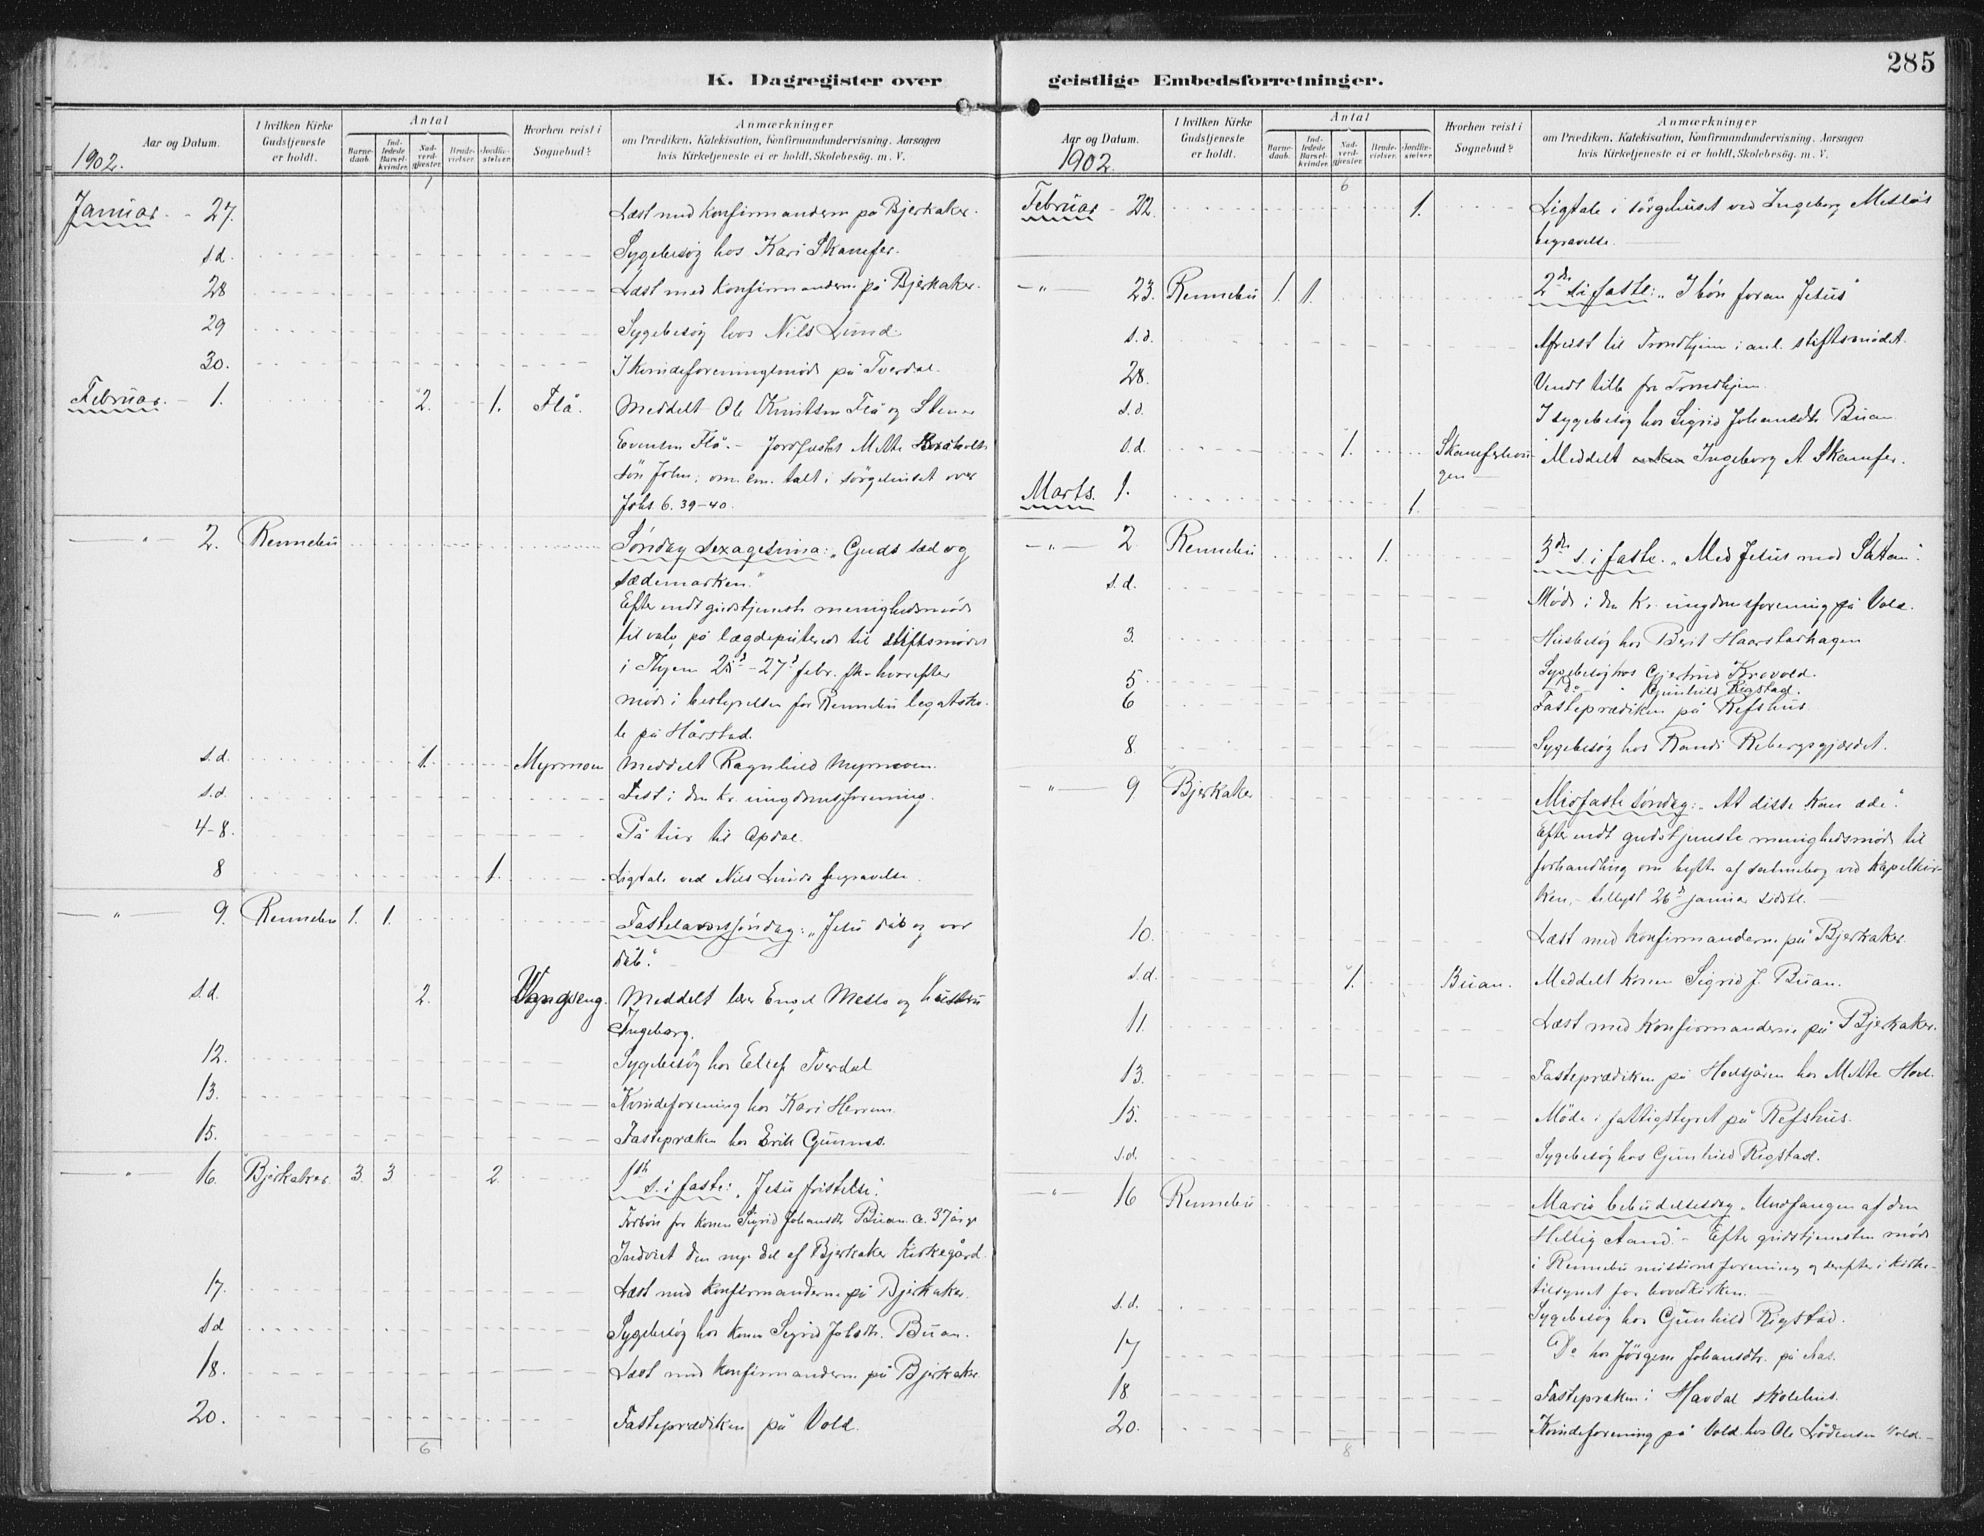 285
K. Dagregister over geistlige Embedsforretninger.
Aar og Datum.
I hvilken Kirke Gudstjeneste er holdt.
Antal
Barnedaab.
Indledede Barselkvinder.
Nadverdgjester.
Brudevielser.
Jordfæstelser.
Hvorhen reist i Sognebud?
Anmærkninger
om Prædiken, Katekisation, Konfirmandundervisning. Aarsagen
hvis Kirketjeneste ei er holdt, Skolebesøg. m. V.
1902.
1
Januar - 27. Læst med konfirmanderne på Bjerkaker.
s.d. Sygebesøg hos Kari Skamfer.
28 Læst med konfirmanderne på Bjerkaker.
29 Sygebesøg hos Nils Lund
30. I kvindeforeningsmøde på Tverdal.
Februar. - 1. 2. 1. Flå. Meddelt Ole Knutsen Flå og Stener
Evensen Flå. - Jordfæstet Mette
søn John; om em. talt i sørgehuset over
Johs 6. 39-40.
— " — 2. Rennebu Søndag sexagesima: „Guds sæd og
sædemarken."
Efter endt gudstjeneste menighedsmøde
til valg på lægdeputerede til stiftsmødet
i Thjem 25de - 27de febr. hvorefter
møde i bestyrelsen for Rennebu legatsko-
le på Hårstad.
s.d. 1. Myrmoen Meddelt Ragnhild Myrmoen.
s.d. Fest i den kr. ungdomsforening.
4-8. På tur til Opdal.
8 1. Ligtale ved Nils Lunds begravelse.
— " — 9. Rennebu 1. 1. Fastelavnssøndag: „Jesu dåb og vor
dåb."
s.d. 2. Vangseng. Meddelt lærer Engel Meslo og hustru
Ingeborg.
12. Sygebesøg hos Ellef Tverdal
13. Kvindeforening hos Kari Herrem.
15. Fastepræken hos Erik Gunnes.
— " — 16. Bjerkaker. 3. 3 2 1ste s. i faste: „Jesu fristelse."
Forbøn for konen Sigrid Johansdtr Buan. c. 37 år gl
Indviet den nye del af Bjerkaker kirkegård.
17. Læst med konfirmanderne på Bjerkaker.
s.d Sygebesøg hos konen Sigrid Johsdtr. Buan.
18. Læst med konfirmanderne på Bjerkaker
20. Fasteprædiken på Vold.
6
Aar og Datum.
I hvilken Kirke Gudstjeneste er holdt.
Antal
Barnedaab.
Indledede Barselkvinder.
Nadverdgjester.
Brudevielser.
Jordfæstelser.
Hvorhen reist i Sognebud?
Anmærkninger
om Prædiken, Katekisation, Konfirmandundervisning. Aarsagen
hvis Kirketjeneste ei er holdt, Skolebesøg. m. V.
1902.
6
Februar - 22. 1. Ligtale i sørgehuset ved Ingeborg Mesløs
begravelse.
— " — 23. Rennebu 1. 1. 2den s. i faste: „I bøn foran Jesus"
s.d. Afreist til Trondhjem i anl. stiftsmødet.
28. Vendt tilb. fra Trondhjem.
s.d. I sygebesøg hos Sigrid Johansdtr Buan
s.d. 1. Skamferhou-
gen Meddelt Ingeborg A. Skamfer.
Marts. 1. 1.
— " — 2 Rennebu 1. 3die s. i faste. „Med Jesus mod Satan."
s.d. Møde i den kr. ungdomsforening på Vold.
3. Husbesøg hos Berit Haarstadhagen
5 Sygebesøg hos Gjertrud Krovold.
do " Gunhild Rigstad.
6 Fasteprædiken på Refshus.
8. Sygebesøg hos Randi Rebergsgjærdet.
— " — 9 Bjerkaker Midfaste søndag: „At disse kan æde."
Efter endt gudstjeneste menighedsmøde til
forhandling om bytte af salmebog ved kapelkir-
ken, - tillyst 26de januar sidstl.
10. Læst med konfirmanderne på Bjerkaker.
s.d. 1. Buan. Meddelt konen Sigrid J. Buan.
11. Læst med konfirmanderne på Bjerkaker.
13. Fasteprædiken på hos Mette Hoel.
15. Møde i fattigstyret på Refshus.
s.d. Sygebesøg hos Gunhild Rigstad.
— " — 16 Rennebu Mariæ bebudelsesdag. „Undfangen af den
Hellig Aand." - Efter gudstjenesten møde
i Rennebu missions forening og derefter i kirke-
tilsynet for hovedkirken.
s.d. Sygebesøg hos Gunhild Rigstad.
17 Do hos Jørgen Johansdtr. på Aas.
18 Fastepræken i Havdal skolehus.
20. Kvindeforening på Vold hos Ole Vold.
8